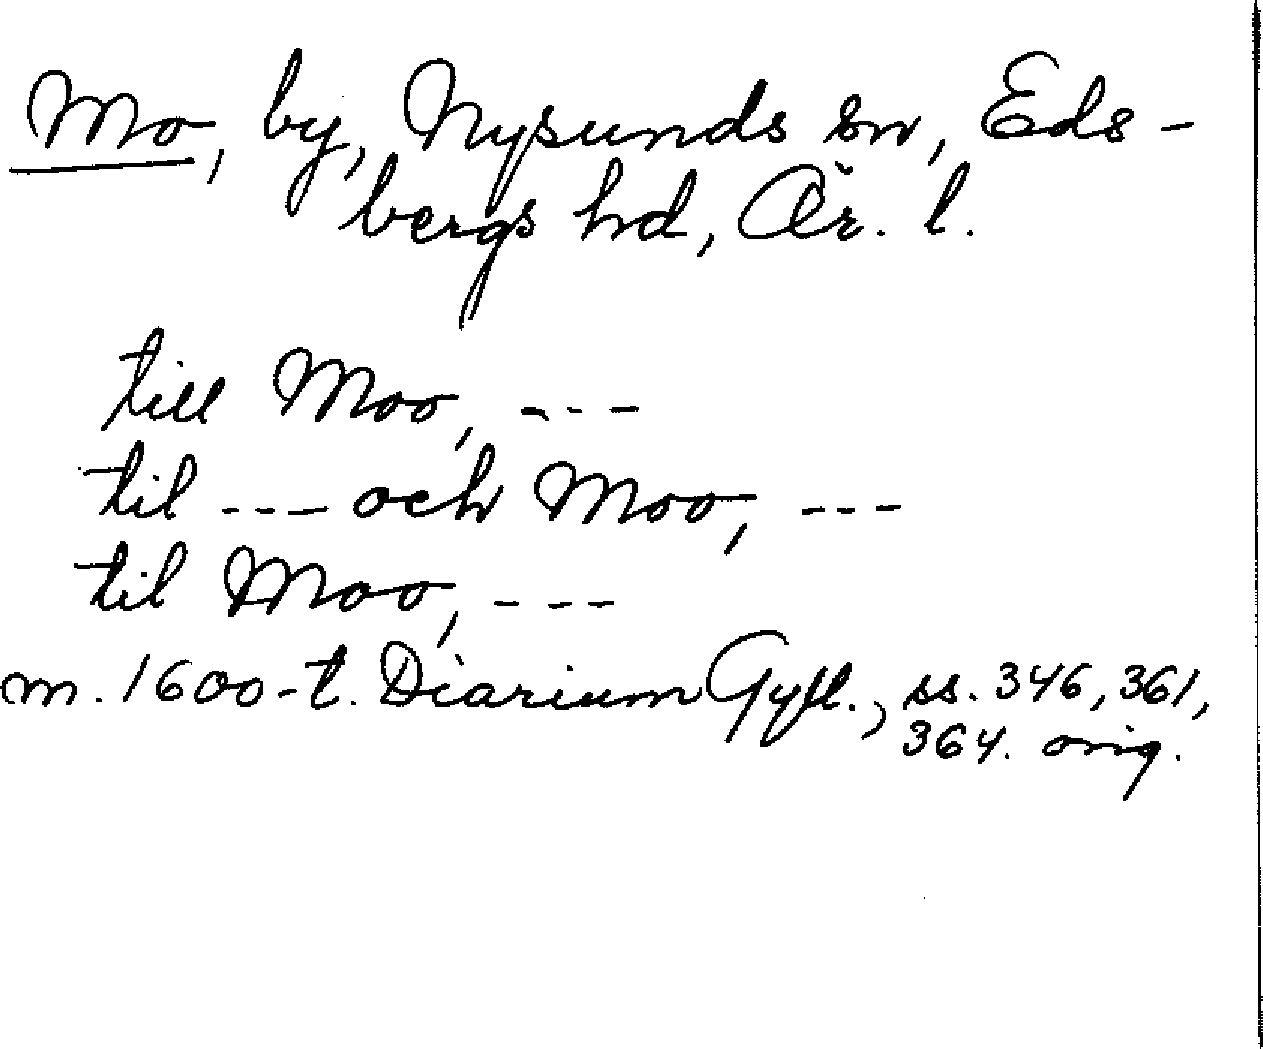 Mo, by, Nysunds sn, Eds-
bergs hd, Ör. l.
till Moo, ---
til --- och Moo, ---
til Moo, ---
m. 1600-t. Diarium Gyll., ss. 346, 361,
364. orig.